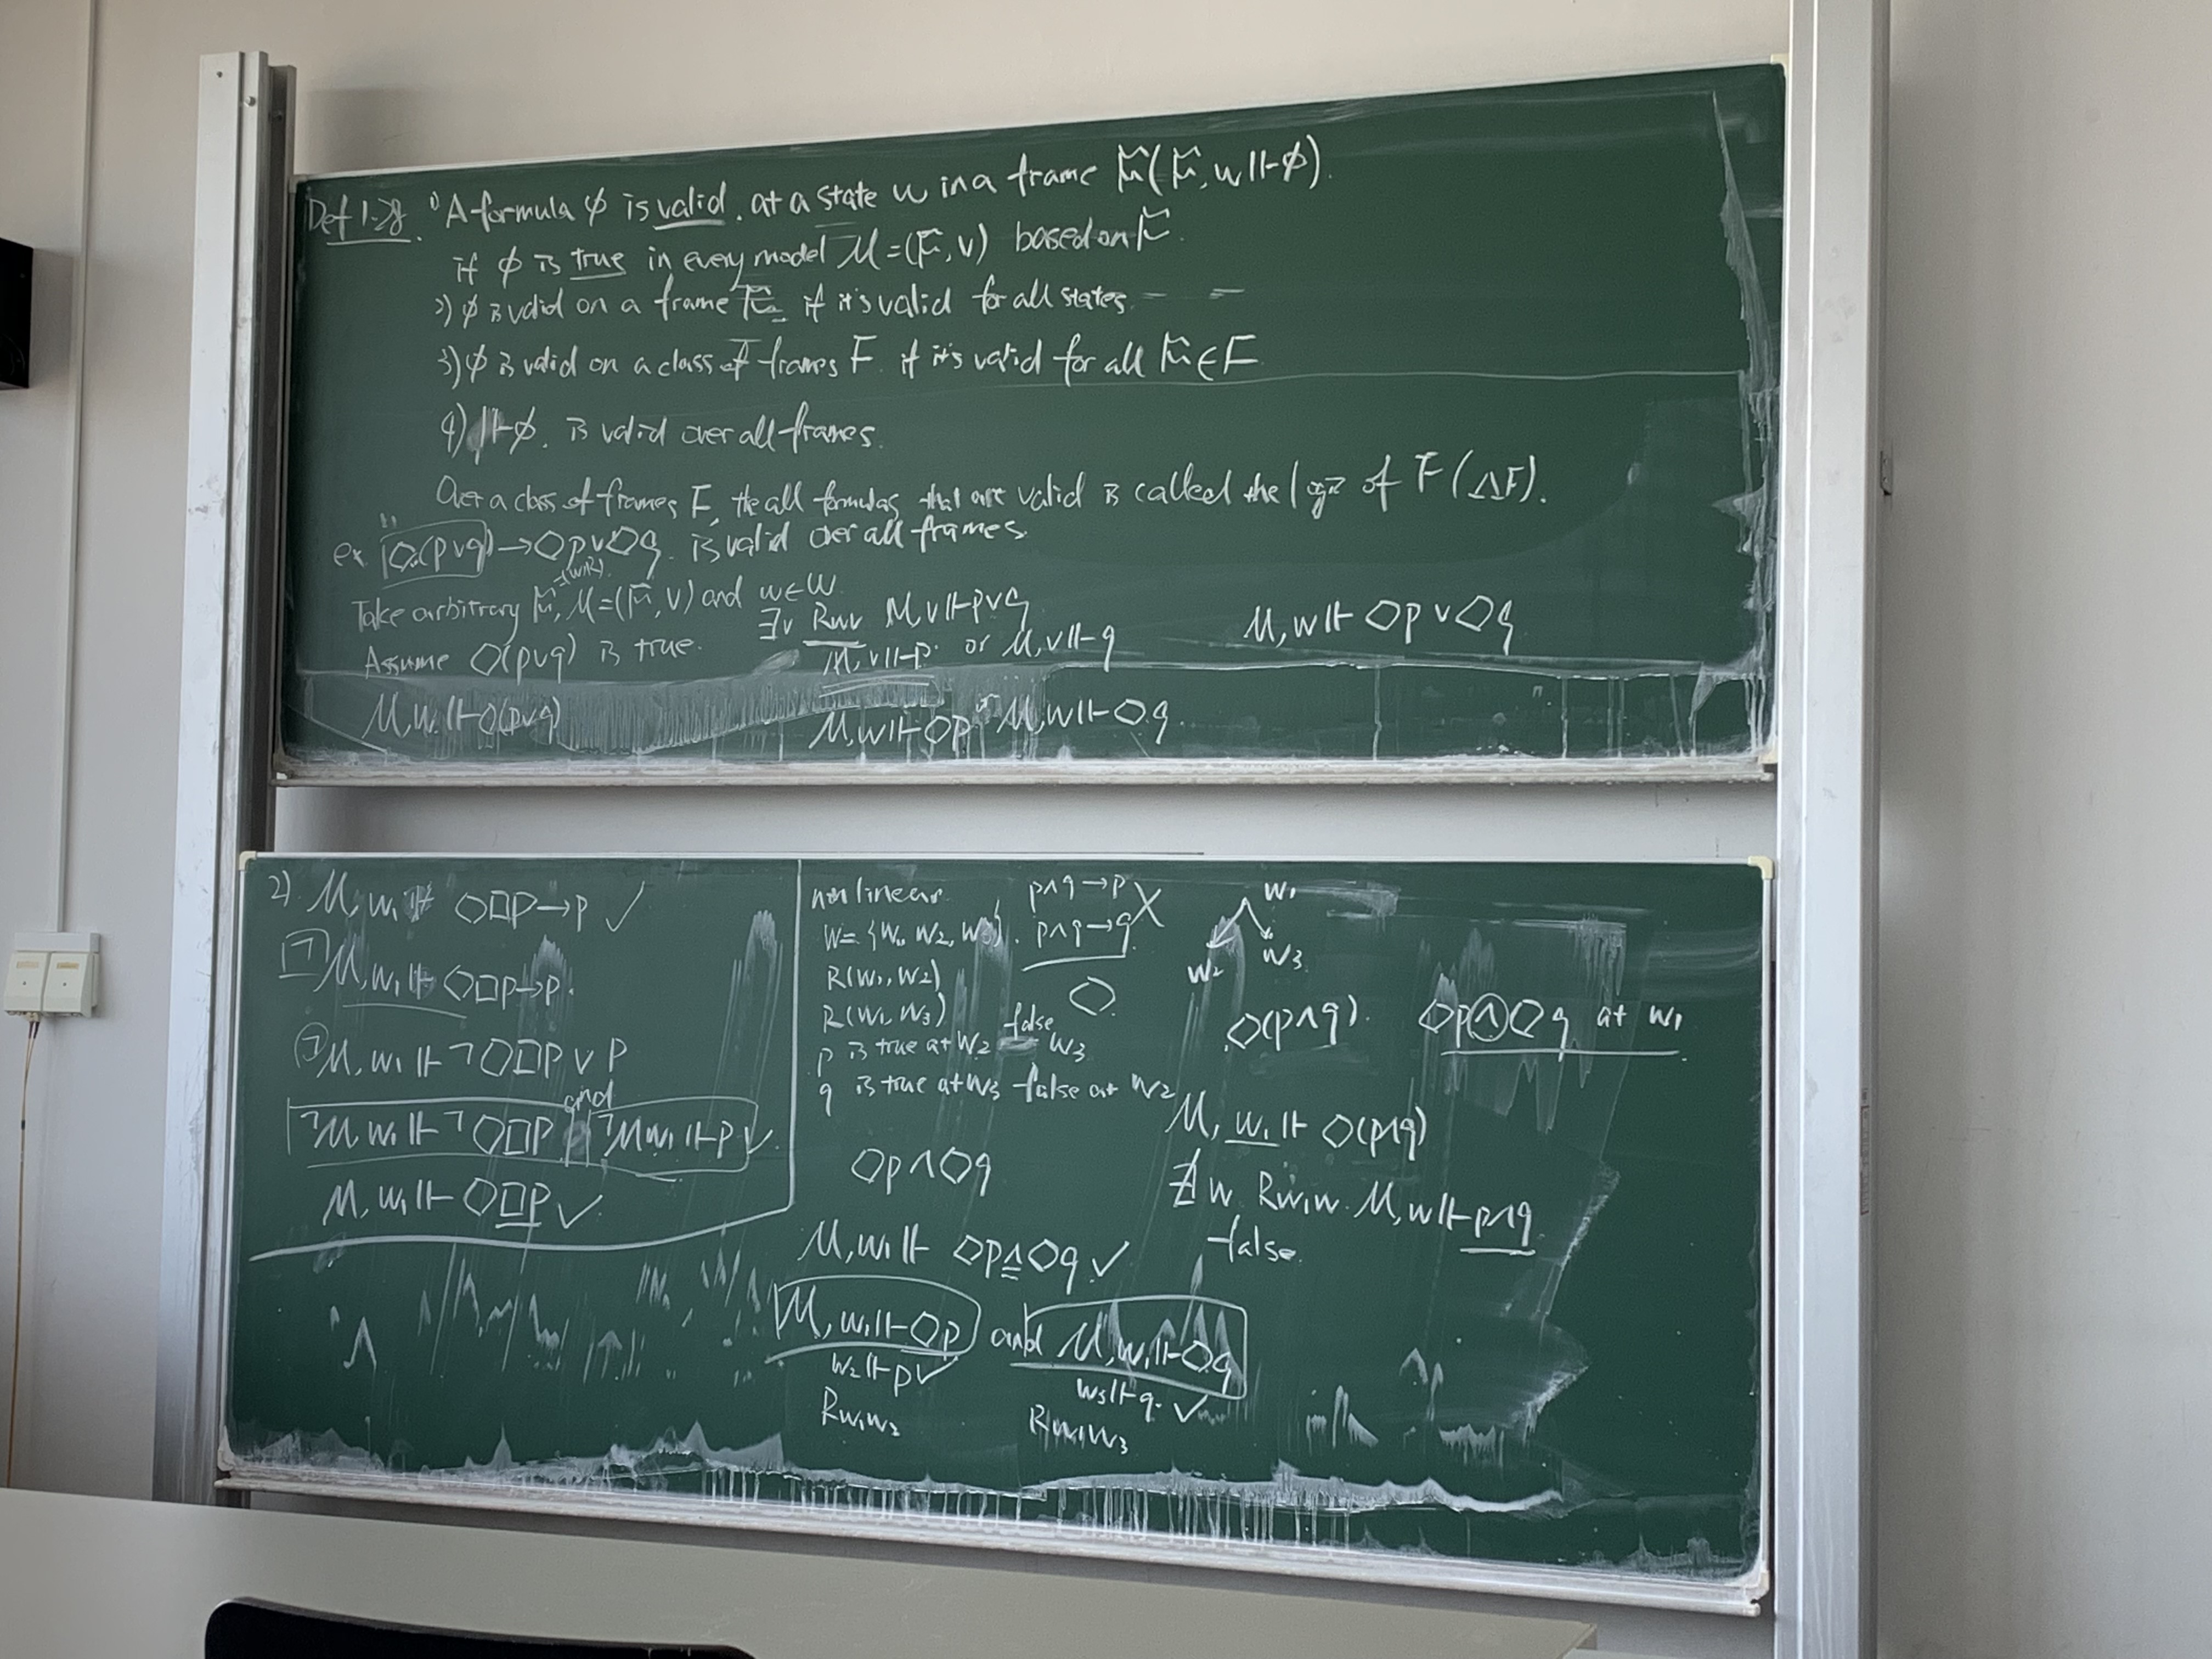 Def 1.28. 1) A formula φ is valid. at a state w in a frame 𝔉 (𝔉, w ⊩ φ).
if φ is true in every model M = (𝔉, V) based on 𝔉.
2) φ is valid on a frame 𝔉 if it's valid for all states.
3) φ is valid on a class of frames F. if it's valid for all 𝔉 ∈ F
4) ⊩ φ. is valid over all frames.
Over a class of frames F, the all formulas that are valid is called the logic of F (ΛF).
ex. ◇(p∨q) → ◇p∨◇q. is valid over all frames.
=(W,R)
Take arbitrary 𝔉, M = (𝔉, V) and w∈W
Assume ◇(p∨q) is true.
M, w ⊩ ◇(p∨q)
∃v Rwv M, v ⊩ p∨q
M, v ⊩ p. or M, v ⊩ q
M, w ⊩ ◇p or M, w ⊩ ◇q.
M, w ⊩ ◇p ∨ ◇q
2) M, w₁ ⊮ ◇□p → p ✓
¬ M, w₁ ⊩ ◇□p → p.
¬ M, w₁ ⊩ ¬◇□p ∨ p
¬M, w₁ ⊩ ¬◇□p and ¬M, w₁ ⊩ p ✓
M, w₁ ⊩ ◇□p ✓
non linear.
W = {w₁, w₂, w₃}.
R(w₁, w₂)
R(w₁, w₃)
p is true at w₂ false w₃
q is true at w₃ false at w₂
p∧q → p
p∧q → q. X
◇
◇p ∧ ◇q
M, w₁ ⊩ ◇p ∧ ◇q ✓
M, w₁ ⊩ ◇p and M, w₁ ⊩ ◇q
w₂ ⊩ p ✓ w₃ ⊩ q. ✓
Rw₁w₂ Rw₁w₃
w₁
w₂ w₃
◇(p∧q). ◇p ∧ ◇q at w₁
M, w₁ ⊩ ◇(p∧q)
∄w Rw₁w. M, w ⊩ p∧q
false.